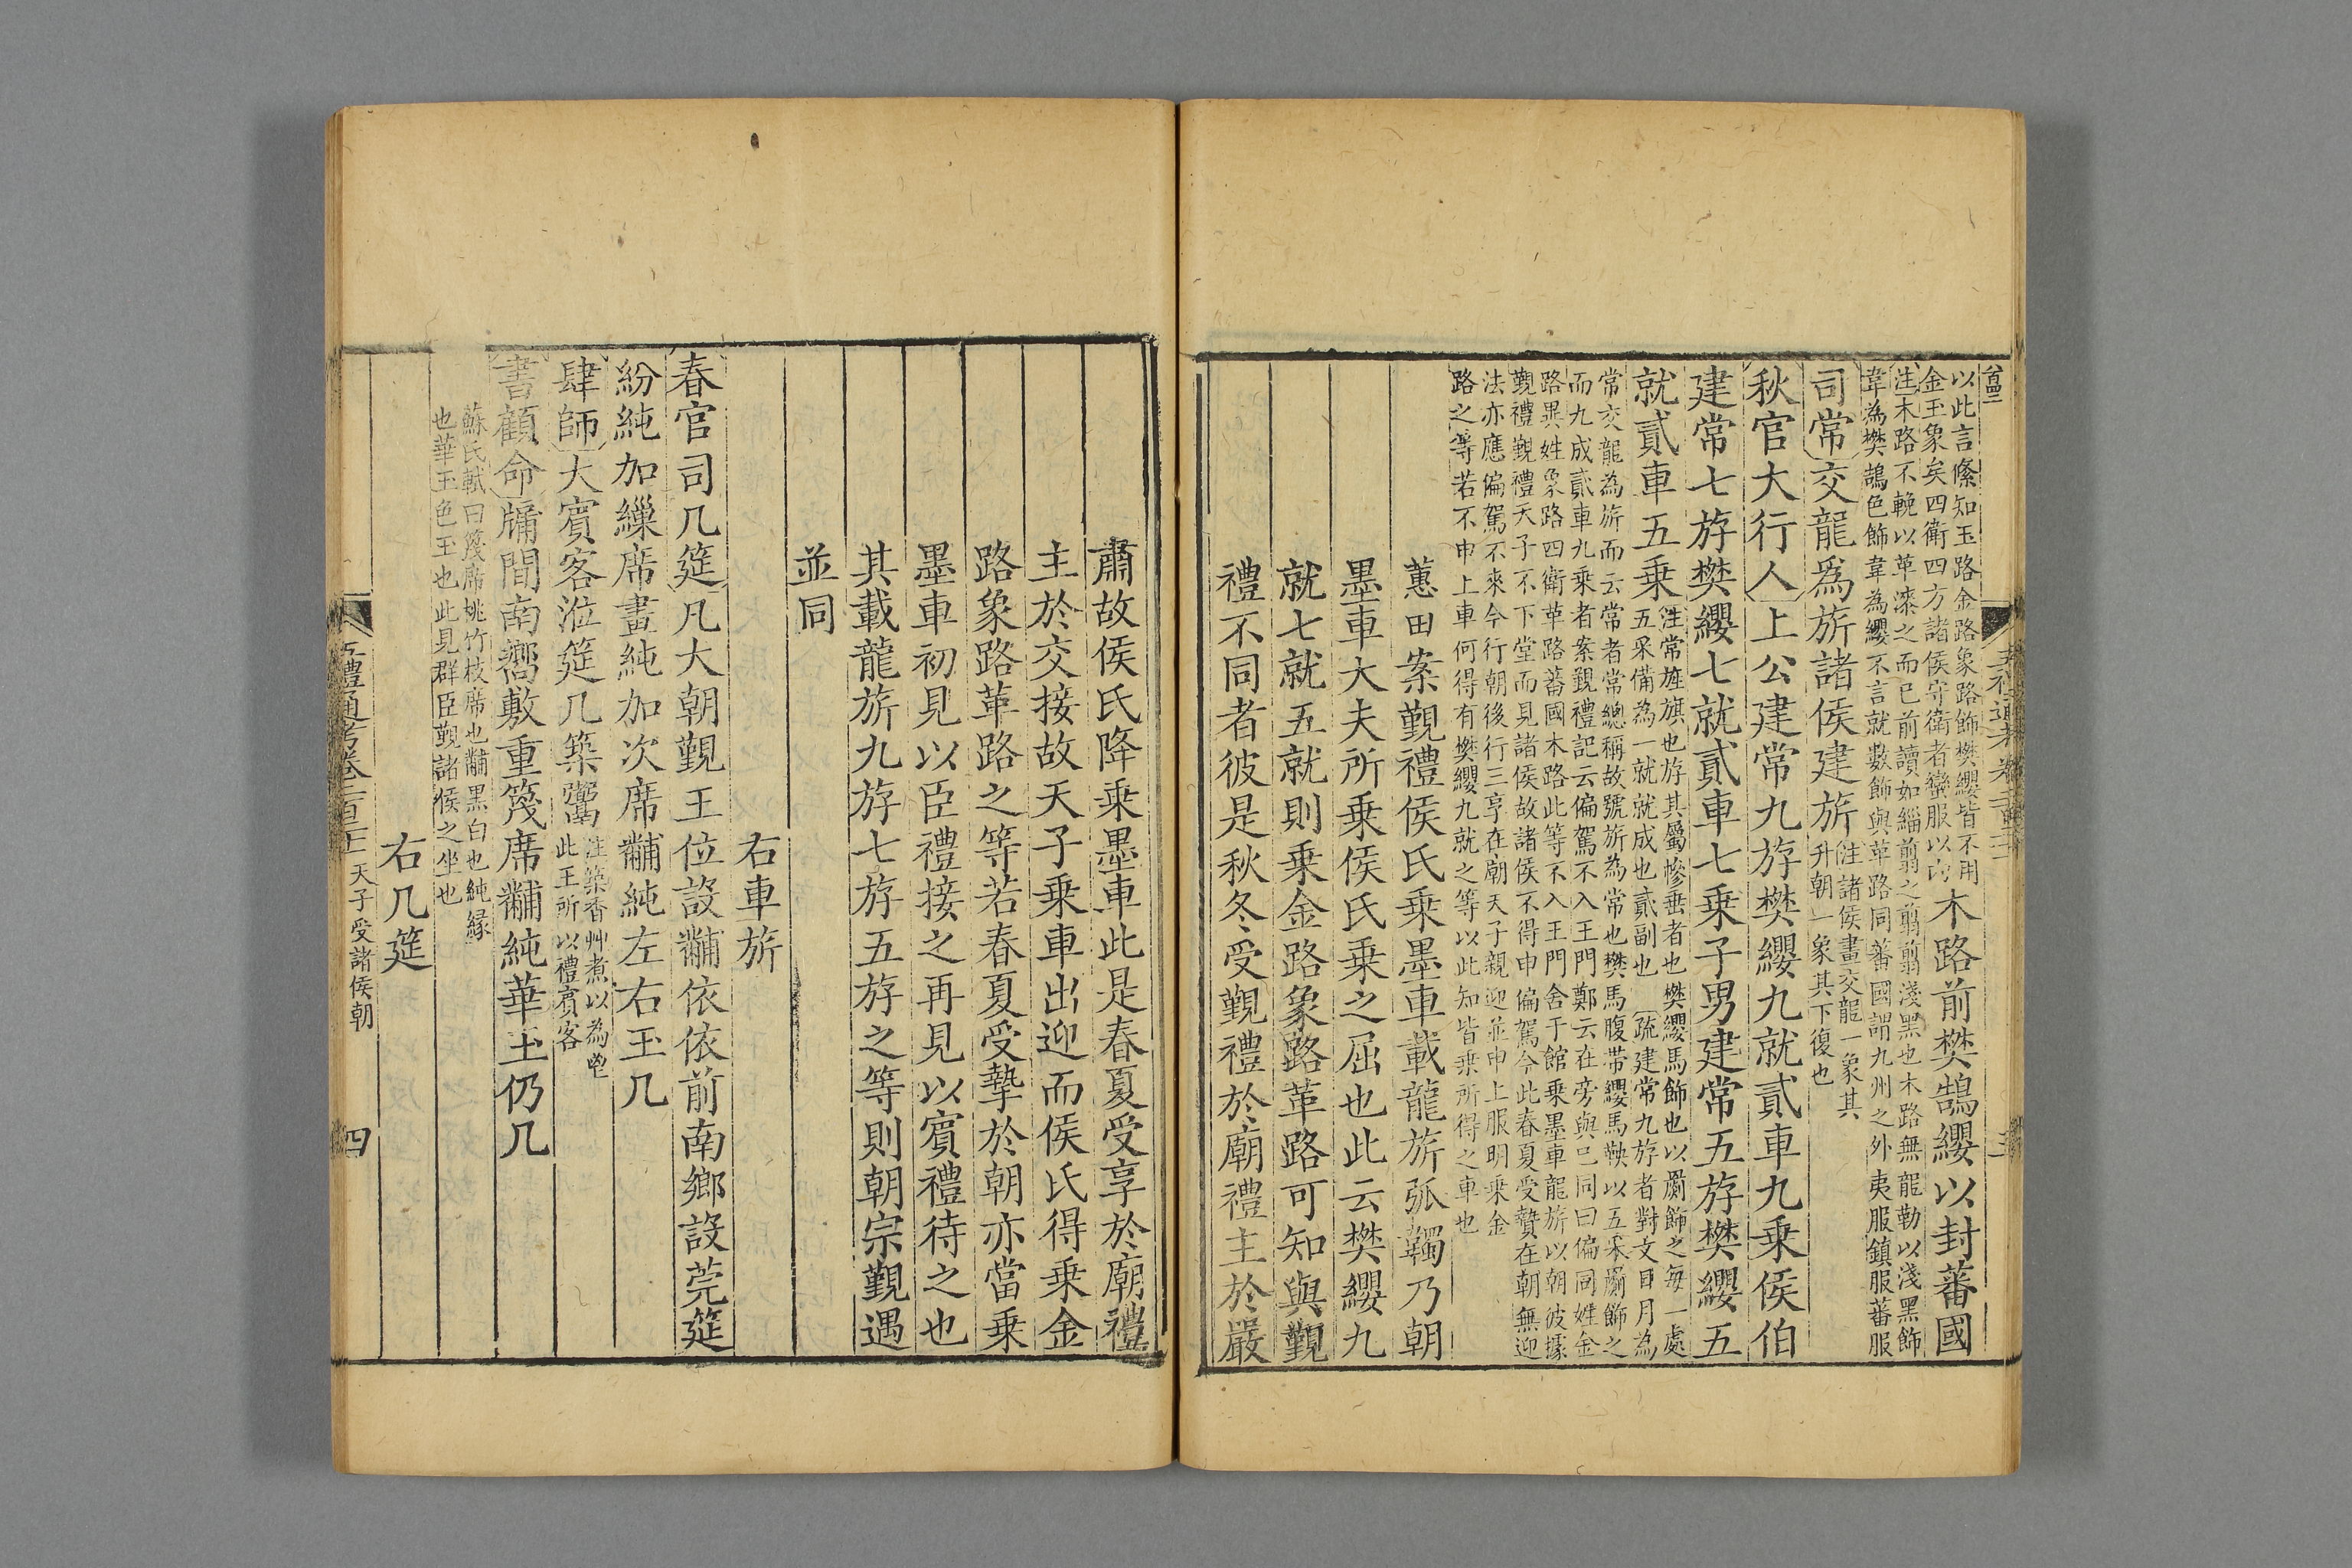 以此言絛知玉路金路象路飾樊纓皆不用
金玉象矣四衛四方諸侯守衛者蠻服以内
木路前樊鵠纓以封蕃國
注木路不輓以革漆之而已前讀如緇翦之翦翦淺黑也木路無龍勒以淺黑飾
韋為樊鵠色飾韋為纓不言就數飾與革路同蕃國謂九州之外夷服鎮服蕃服
司常交龍爲旂諸侯建旂
注諸侯畫交龍一象其
升朝一象其下復也
秋官大行人上公建常九斿樊纓九就貳車九乘侯伯
建常七斿樊纓七就貳車七乘子男建常五斿樊纓五
就貳車五乘
注常旌旗也斿其屬幓垂者也樊纓馬飾也以罽飾之每一處
五采備為一就就成也貳副也 疏建常九斿者對文日月為
常交龍為旂而云常者常總稱故號旂為常也樊馬腹帶纓馬鞅以五采罽飾之
而九成貳車九乘者案覲禮記云偏駕不入王門鄭云在旁與已同曰偏同姓金
路異姓象路四衛革路蕃國木路此等不入王門舍于館乗墨車龍旂以朝彼據
覲禮覲禮天子不下堂而見諸侯故諸侯不得申偏駕今此春夏受贄在朝無迎
法亦應偏駕不來今行朝後行三享在廟天子親迎並申上服明乘金
路之等若不申上車何得有樊纓九就之等以此知皆乗所得之車也
蕙田案覲禮侯氏乗墨車載龍旂弧韣乃朝
墨車大夫所乗侯氏乗之屈也此云樊纓九
就七就五就則乗金路象路革路可知與覲
禮不同者彼是秋冬受覲禮於廟禮主於嚴
肅故侯氏降乗墨車此是春夏受享於廟禮
主於交接故天子乗車出迎而侯氏得乗金
路象路革路之等若春夏受摯於朝亦當乗
墨車初見以臣禮接之再見以賓禮待之也
其載龍旂九斿七斿五斿之等則朝宗覲遇
並同
右車旂
春官司几筵凡大朝覲王位設黼依依前南鄉設莞筵
紛純加繅席畫純加次席黼純左右玉几
肆師大賓客涖筵几築鬻
注築香艸煮以為鬯
此王所以禮賓客
書顧命牖間南嚮敷重篾席黼純華玉仍几
蘇氏軾曰篾席桃竹枝席也黼黑白也純緣
也華玉色玉也此見群臣覲諸侯之坐也
右几筵
五禮通考卷二百二十 天子受諸侯朝
四